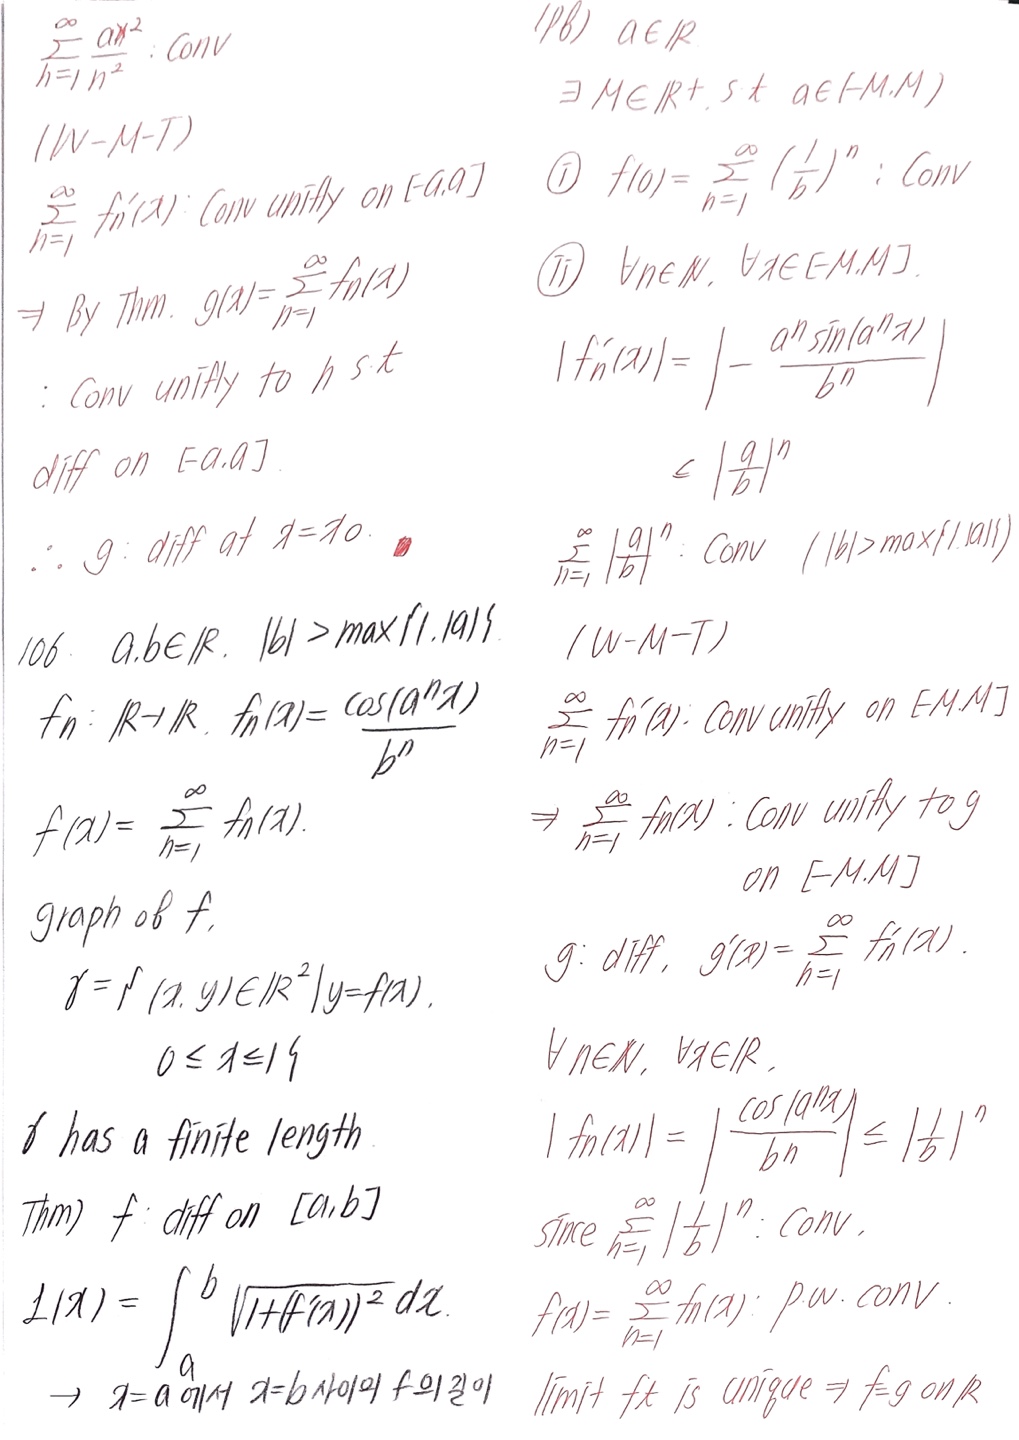 ∞
Σ ax²/n² : Conv
n=1
(W-M-T)
∞
Σ fn'(x) : Conv unifly on [-a.a]
n=1
⇒ By Thm. g(x) = Σ_{n=1}^∞ fn(x)
: Conv unifly to h s.t
diff on [-a.a]
∴ g : diff at x=x0.
106. a.b∈ℝ. |b| > max{1.|a|}.
fn : ℝ→ℝ. fn(x) = cos(aⁿx)/bⁿ
f(x) = Σ_{n=1}^∞ fn(x).
graph of f.
γ = {(x.y)∈ℝ² | y=f(x).
0 ≤ x ≤ 1}
γ has a finite length.
Thm) f : diff on [a.b]
L(x) = ∫_a^b √(1+(f'(x))²) dx.
→ x=a에서 x=b사이의 f의 길이
(pb) a∈ℝ
∃M∈ℝ+. s.t a∈(-M.M)
ⓘ f(0) = Σ_{n=1}^∞ (1/b)ⁿ : Conv
ⓘⓘ ∀n∈ℕ. ∀x∈[-M.M].
|fn'(x)| = |- aⁿsin(aⁿx)/bⁿ|
≤ |a/b|ⁿ
Σ_{n=1}^∞ |a/b|ⁿ : Conv (|b|>max{1.|a|})
(W-M-T)
Σ_{n=1}^∞ fn'(x) : Conv unifly on [-M.M]
⇒ Σ_{n=1}^∞ fn(x) : Conv unifly to g
on [-M.M]
g : diff, g'(x) = Σ_{n=1}^∞ fn'(x).
∀n∈ℕ, ∀x∈ℝ,
|fn(x)| = |cos(aⁿx)/bⁿ| ≤ |1/b|ⁿ
since Σ_{n=1}^∞ |1/b|ⁿ : Conv.
f(x) = Σ_{n=1}^∞ fn(x) : p.w. conv.
limit ft is unique ⇒ f=g on ℝ